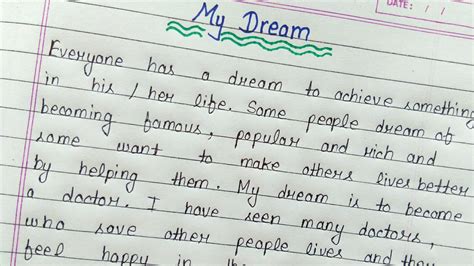 DATE: / /
My Dream
Everyone has a dream to achieve something
in his / her life. Some people dream of
becoming famous, popular and rich and
some want to make others lives better
by helping them. My dream is to become
a doctor. I have seen many doctors,
who save other people lives and they
feel happy in